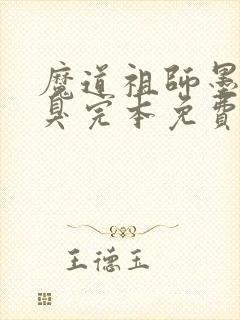 魔道祖師墨
臭完本免費
王德玉